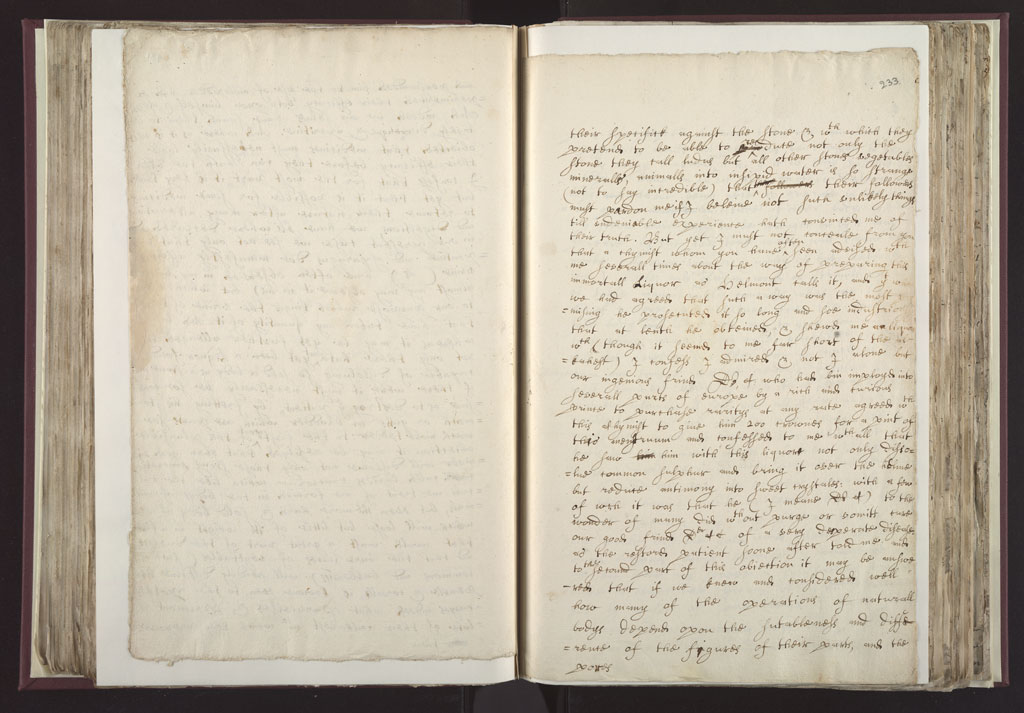 233
their specifick against the stone & wth which they
pretend to be able to reduce not only the
stone they call ludus but all other stones vegetables
mineralls, animalls into insipid water is so strange
(not to say incredible) that their followers
must pardon me if I beleeve not such unlikely things
till undeniable experience hath convinced me of
their truth. But yet I must not conceale from you
that a chymist whom you have often seen
me severall times about the way of prepairing this
immortall Liquor as Helmont calls it, and
we had agreed that such a way was the most
=mising he prosecuted it so long and soe industrio
that at lenth he obteined, & shewed me a liquor
wth (though it seemed to me far short of the al
=cahest) I confess I admired & not I alone but
our ingenious frind who had bin imployed into
severall parts of europe by a rich and curious
prince to purchase raritys at any rate agreed wth
this alchymist to give him 200 crownes for a pint of
this menstruum and confessed to me with all that
he saw him with this liquor not only dissol=
=ve common sulphur and bring it over the helme
but reduce antimony into sweet crystales: with a few
of wch it was that he (I meane ) to the
wonder of many did wthout purge or vomitt cure
our good frind of a very desperate disease
as the restored patient soone after told me and
to the second part of this obiection it may be answe
=red that if we knew and considered well
how many of the operations of naturall
bodys depend opon the sutableness and diffe
=rence of the figures of their parts, and the
pores